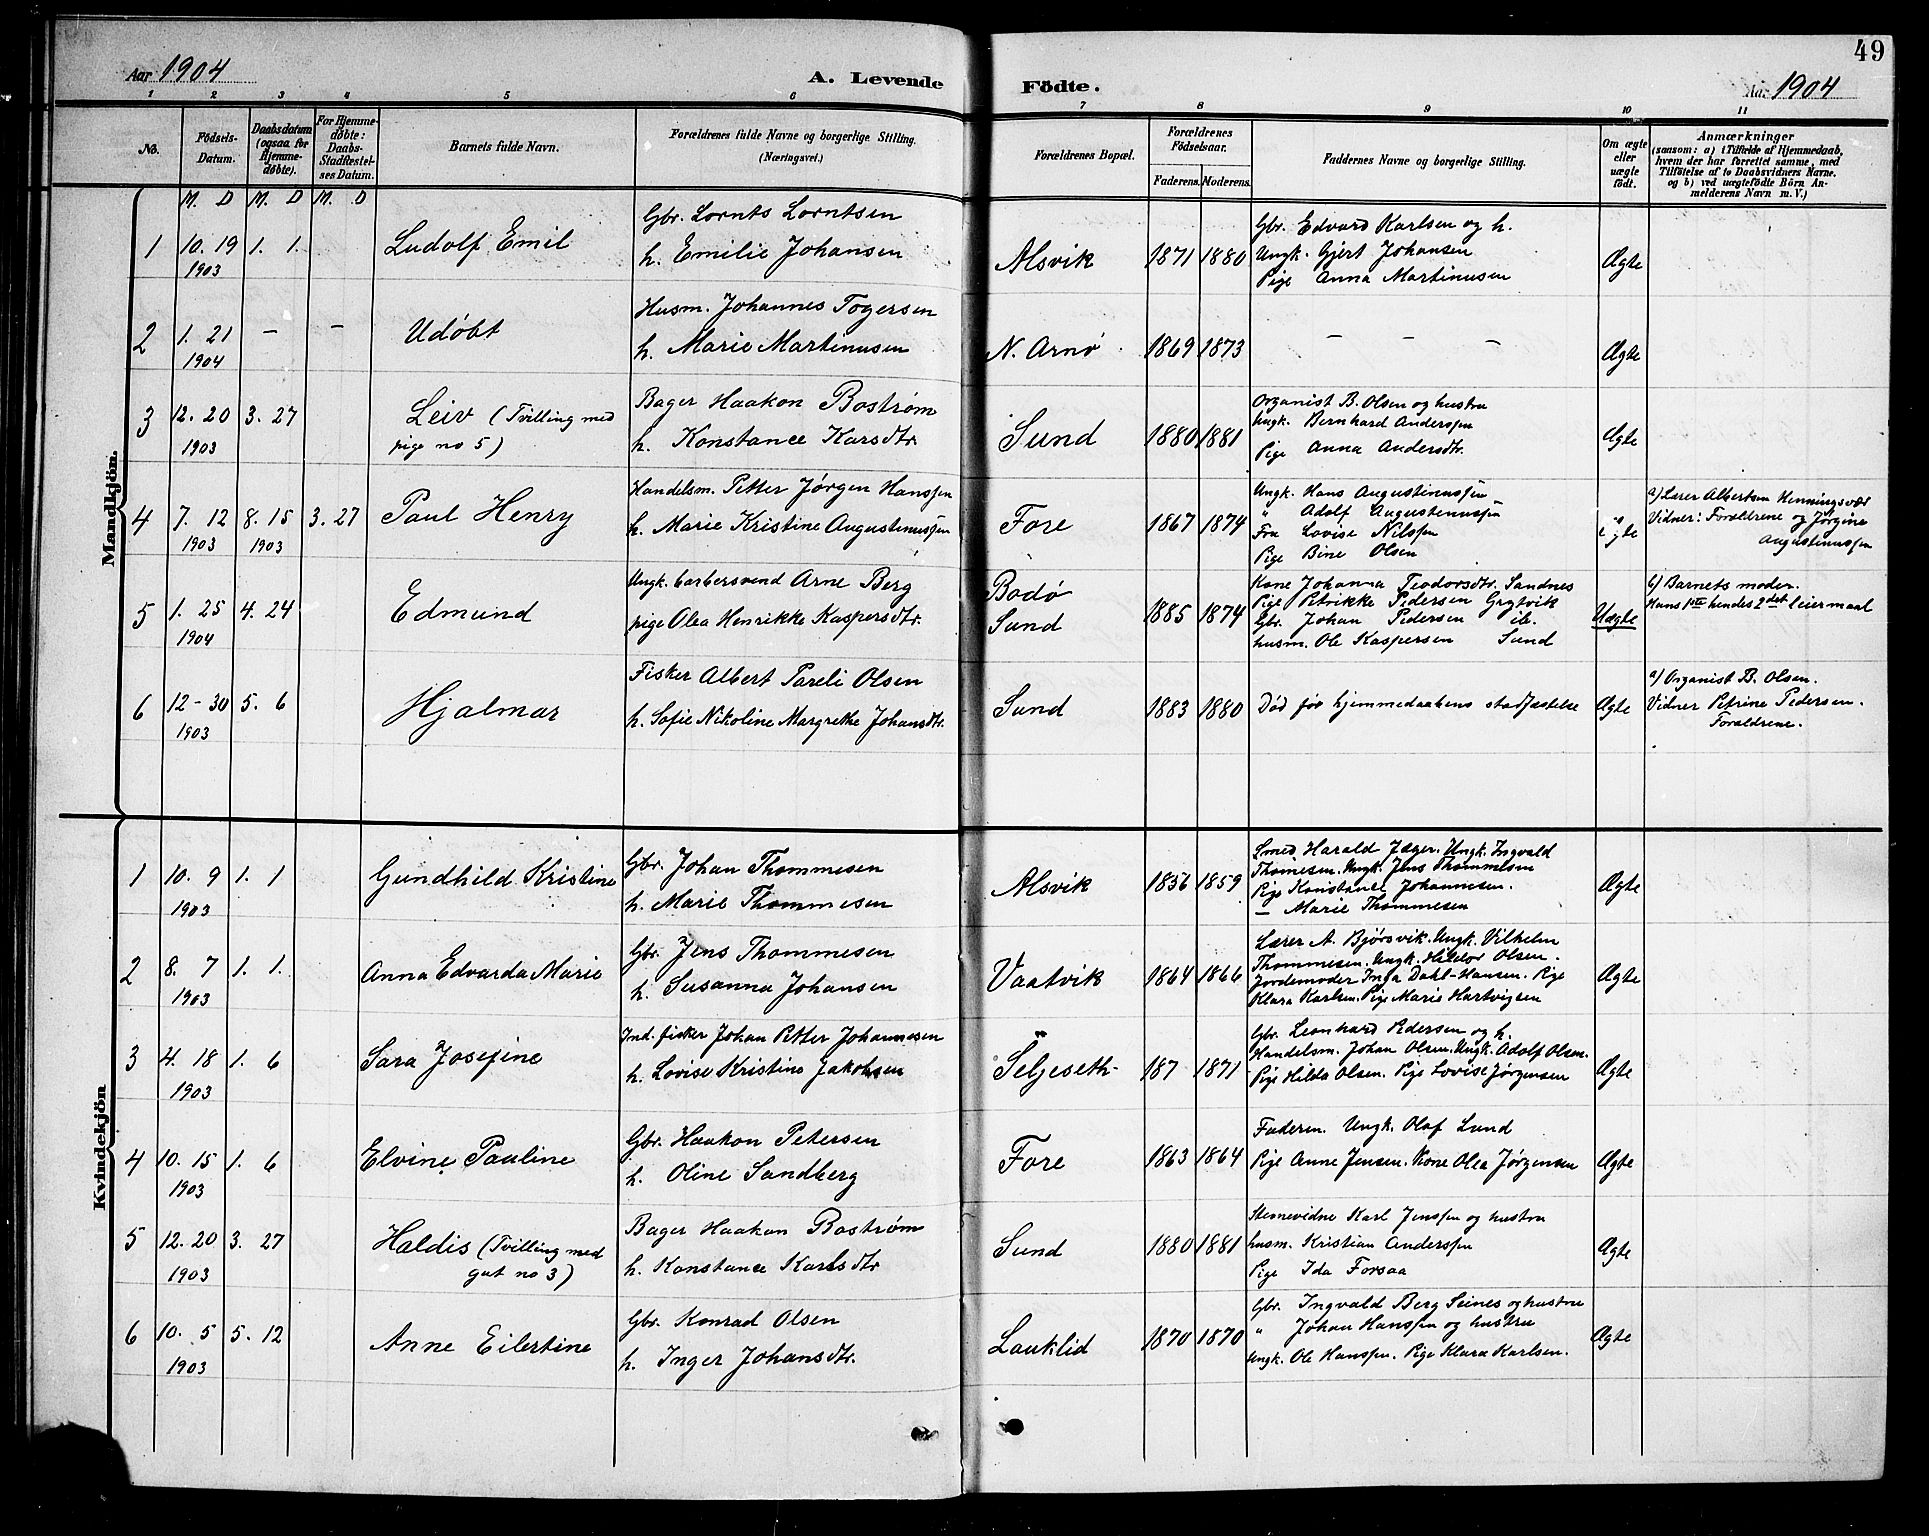 49
Aar 1904
A. Levende
Födte.
Aar 1904
1 2 3 4 5 6 7 8 9 10 11
No.
Födsels-Datum.
Daabsdatum (ogsaa for Hjemmedöbte).
For Hjemmedøbte: Daabs-Stadfæstelses Datum.
Barnets fulde Navn.
Forældrenes fulde Navne og borgerlige Stilling.
(Næringsvei.)
Forældrenes Bopæl.
Forældrenes Födselsaar.
Faderens. Moderens.
Faddernes Navne og borgerlige Stilling.
Om ægte eller uægte födt.
Anmærkninger
(saasom: a) i Tilfælde af Hjemmedaab, hvem der har forrettet samme, med Tilföielse af to Daabsvidners Navne. og b) ved uægtefödte Börn Anmelderens Navn m. V.)
M. D M. D M. D
Mandkjön.
1 10. 19 1903 1. 1. Ludolf Emil
Gbr. Lornts Lorntsen
h. Emilie Johansen
Alsvik 1871 1880
Gbr. Edvard Karlsen og h.
Ungk. Gjert Johansen
Pige Anna Martinusen
Ægte
2 1. 21 1904 – – Udøbt
Husm. Johannes Togersen
h. Marie Martinusen
N. Arnø 1869 1873 – – – Ægte
3 12. 20 1903 3. 27 Leiv (Tvilling med
pige no 5)
Bager Haakon Bostrøm
h. Konstance Karsdtr.
Sund 1880 1881
Organist B. Olsen og hustru
Ungk. Bernhard Anderssen
Pige Anna Andersdtr.
Ægte
4 7. 12 1903 8. 15 1903 3. 27 Paul Henry
Handelsm. Petter Jørgen Hanssen
h. Marie Kristine Augustinussen
Fore 1867 1874
Ungk. Hans Augustinussen
" Adolf Augustenussen
Fru Lovise Nilssen
Pige Bine Olsen
a) Lærer Albertsen Henningsvær
Vidner: Forældrene og Jørgine
Augustinussen
5 1. 25 1904 4. 24 Edmund
Ungk. barbersvend Arne Berg
pige Olea Henrikke Kaspersdtr.
Bodø
Sund 1885 1874
Kone Johanna Teodorsdtr. Sandnes
Pige Petrikke Pedersen Grytvik
Gbr. Johan Pedersen ib.
husm. Ole Kaspersen Sund
Uægte
b) Barnets moder.
Hans 1ste hendes 2det leiermaal
6 12-30 1903 5. 6 Hjalmar
Fisker Albert Pareli Olsen
h. Sofie Nikoline Margrethe Johansdtr.
Sund 1883 1880 Død før hjemmedaabens stadfæstelse Ægte
a) Organist B. Olsen.
Vidner Petrine Pedersen.
Forældrene.
Kvindekjön
1 10. 9 1903 1. 1 Gundhild Kristine
Gbr. Johan Thommesen
h. Marie Thommesen
Alsvik 1856 1859
Smed Harald Jæger. Ungk. Ingvald
Thomesen. Ungk. Jens Thommesen
Pige Konstance Johannesen.
— Marie Thommesen
Ægte
2 8. 7 1903 1. 1. Anna Edvarda Marie
Gbr. Jens Thommesen
h. Susanna Johansen
Vaatvik 1864 1866
Lærer A. Bjørsvik. Ungk. Vilhelm
Thommesen. Ungk. Hildor Olsen.
Jordemoder Inga Dahl-Hansen. Pige
Klara Karlsen. Pige Marie Hartvigsen
Ægte
3 4. 18 1903 1. 6 Sara Josefine
Ind. fisker Johan Petter Johannesen
h. Lovise Kristine Jakobsen
Seljeseth- 187 1871
Gbr. Leonhard Pedersen og h.
Handelsm. Johan Olsen. Ungk. Adolf Olsen.
Pige Hilda Olsen. Pige Lovise Jørgensen
Ægte
4 10. 15 1903 1. 6 Elvine Pauline
Gbr. Haakon Petersen
h. Oline Sandberg
Fore 1863 1864
Faderen. Ungk. Olaf Lund
Pige Anne Jensen. Kone Olea Jørgensen
Ægte
5 12. 20 1903 3. 27 Haldis (Tvilling med
gut no 3)
Bager Haakon Bostrøm
h. Konstance Karlsdtr
Sund 1880 1881
Stevnevidne Karl Jenssen og hustru
husm. Kristian Anderssen
Pige Ida Forsaa
Ægte
6 10. 5 1903 5. 12 Anne Eilertine
Gbr. Konrad Olsen
h. Inger Johansdtr.
Lauklid 1870 1870
Gbr. Ingvald Berg Seines og hustru
" Johan Hanssen og hustru
Ungk. Ole Hanssen. Pige Klara Karlsen.
Ægte